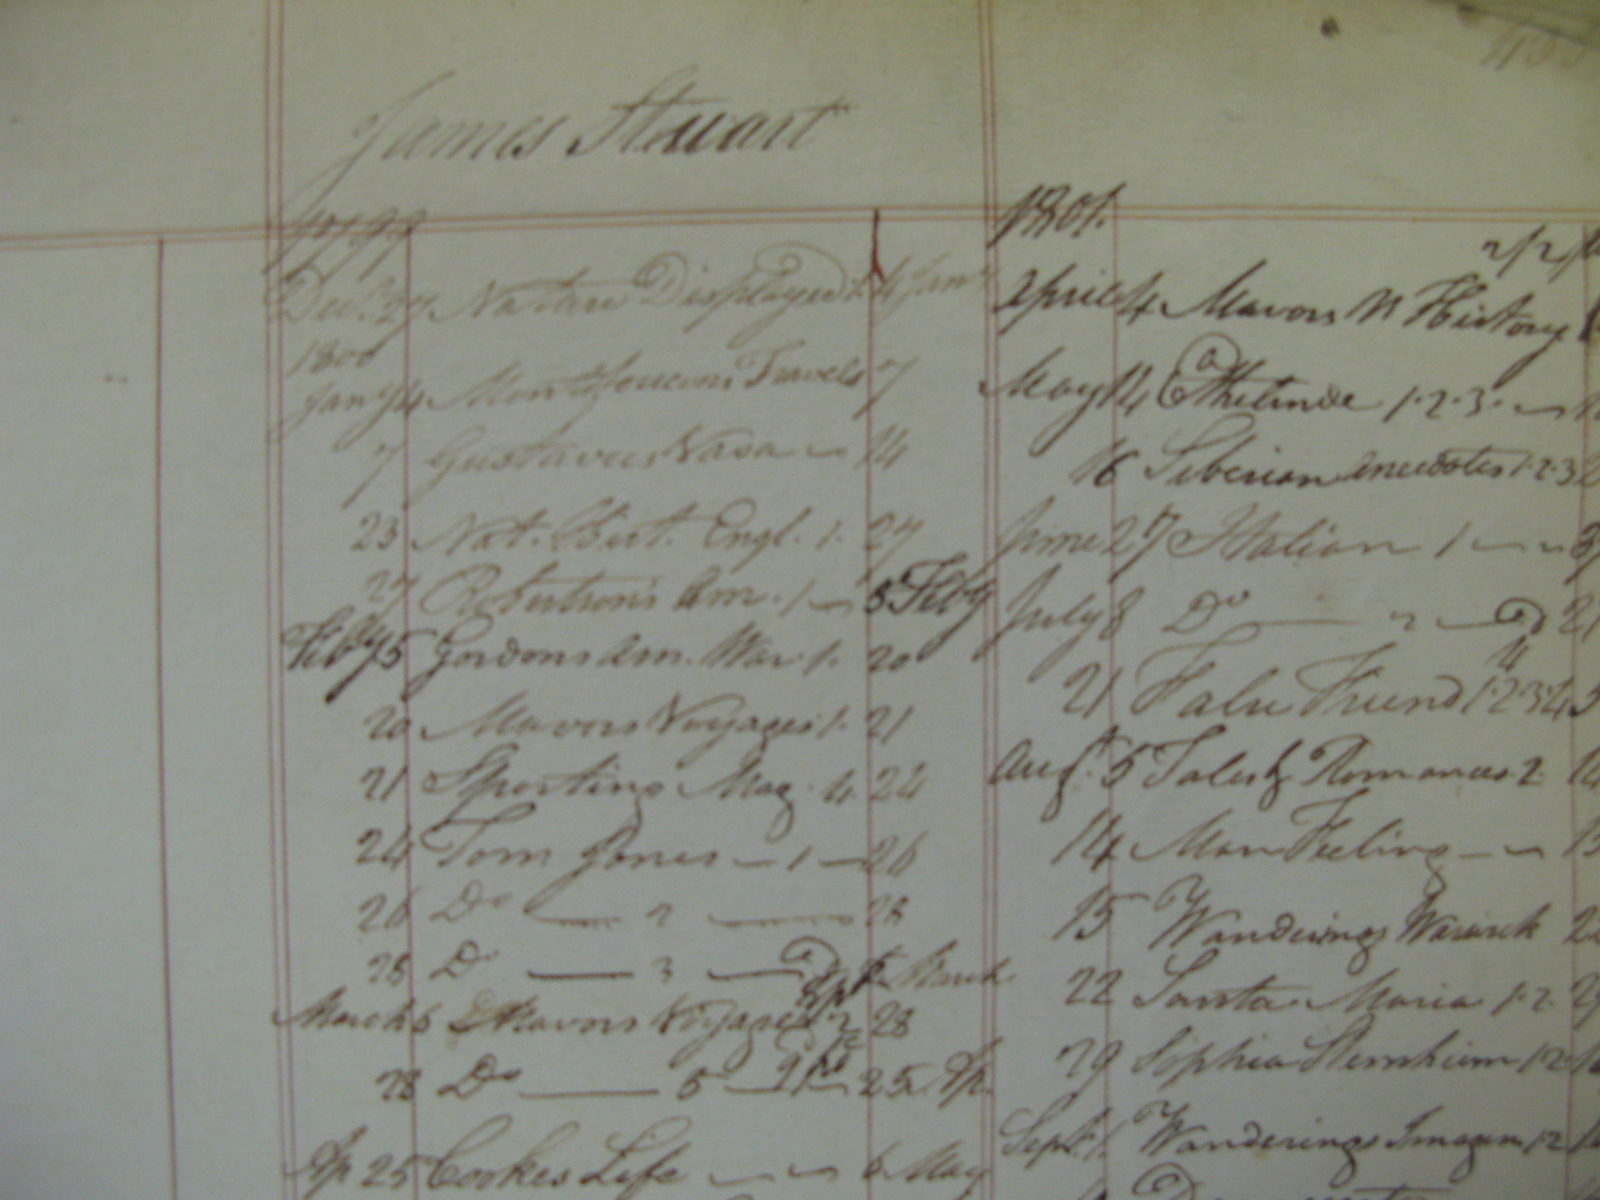 James Stewart
1799
Decr. 27 Nature Displayed 1. 4 Jany
1800
Jany 4 Travels 7
7 Gustavus Vasa 14
23 Nat. Hist. Engl. 1. 27
27 Robertson's Am. 1 5 Feby
Feby 5 Gordons Am. War. 1. 20
20 Mavors Voyages 1. 21
21 Sporting Mag. 4. 24
24 Tom Jones 1 26
26 Do 2 28
28 Do 3 March
March 6 Mavors Voyages 2 28
28 Do 5 25 Ap.
Ap 25 Cookes Life 6 May
1801.
April 4 Mavors N History
May 14 Ethelinde 1.2.3.
16 Siberian Anecdotes 1.2.3
June 27 Italian 1
July 8 Do 2 21
21 False Friend 1.2.3.4 5
Augt. 5 Tales & Romances 2. 14
14 Man Feeling 15
15 Wanderings Warwick 22
22 Santa Maria 1.2. 29
29 Sophia Sternheim 1.2
Sept. 1. Wanderings Imagin 1.2